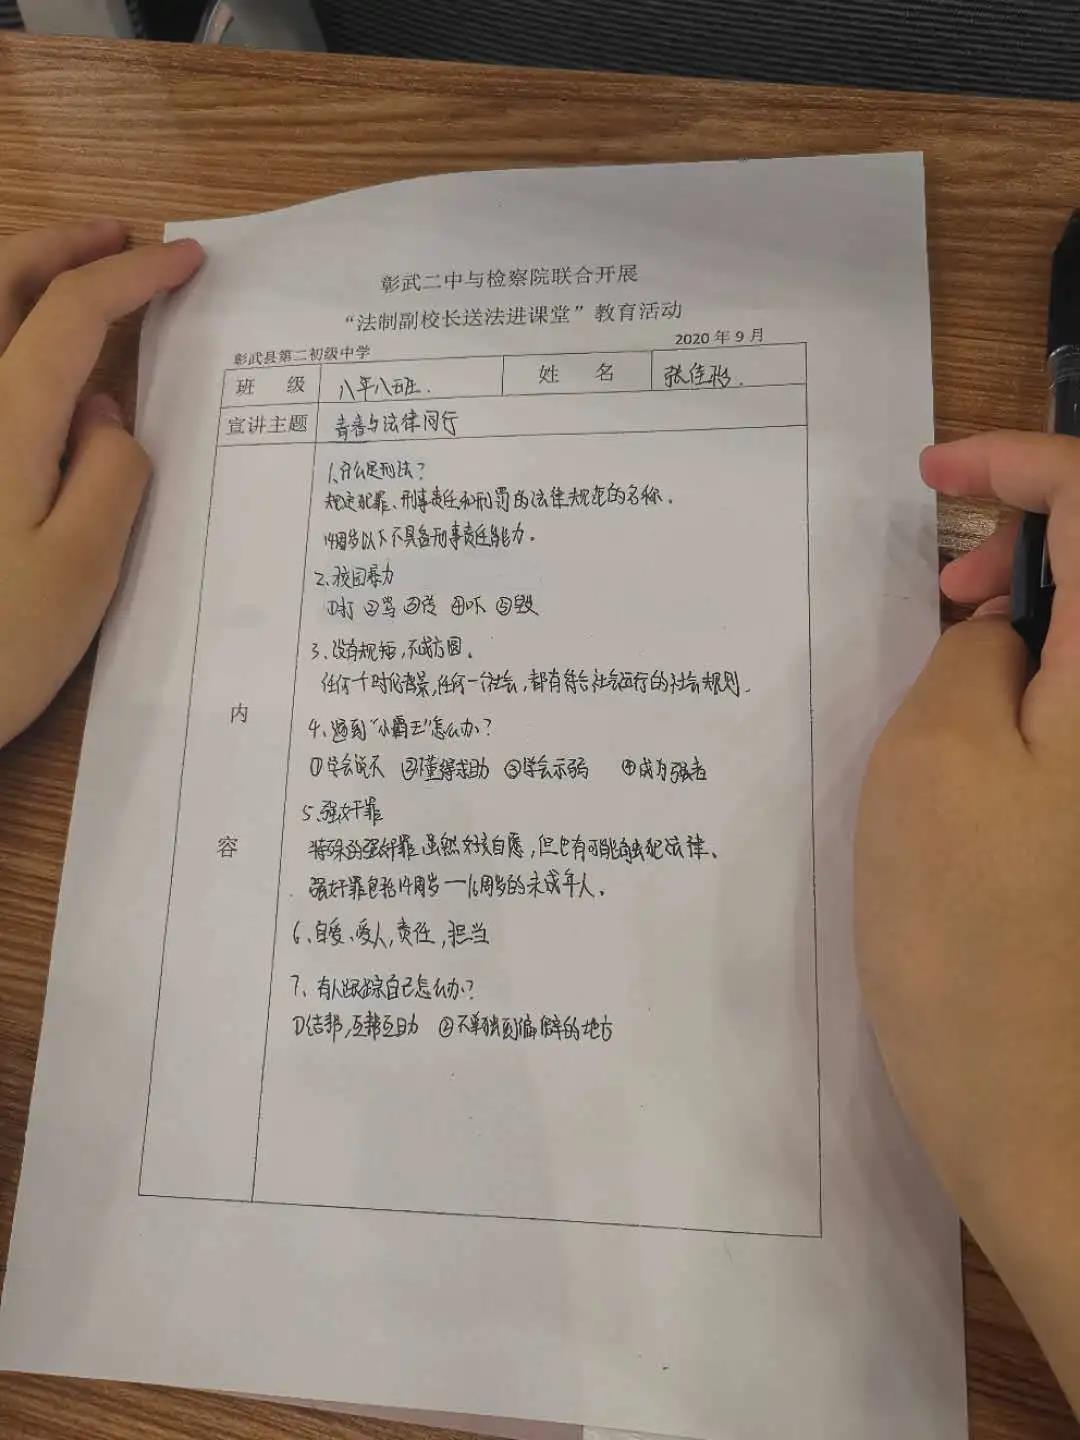 彰武二中与检察院联合开展
“法制副校长送法进课堂”教育活动
彰武县第二初级中学
2020 年 9 月
班 级 八年八班. 姓 名 张佳怡.
宣讲主题 青春与法律同行
内 容
1、什么是刑法?
规定犯罪、刑事责任和刑罚的法律规范的名称.
14周岁以下不具备刑事责任能力。
2、校园暴力
①打 ②骂 ③传 ④吓 ⑤毁
3、没有规矩,不成方圆。
任何一个时代背景,任何一个社会,都有符合社会运行的社会规则.
4、遇到“小霸王”怎么办?
①学会说不 ②懂得求助 ③学会示弱 ④成为强者
5、强奸罪
特殊的强奸罪虽然女孩自愿,但也有可能触犯法律、
强奸罪包括14周岁—16周岁的未成年人。
6、自爱、爱人,责任,担当
7、有人跟踪自己怎么办?
①结帮,互帮互助 ②不单独到偏僻的地方